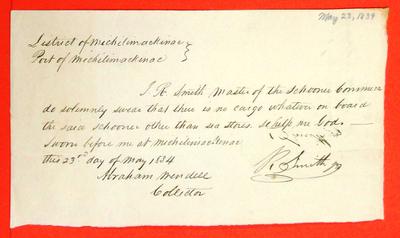 May 23, 1834
District of Michilimackinac
Port of Michilimackinac
I R. Smith Master of the Schooner Commerce
do solemnly swear that there is no cargo whatever on board
the said schooner other than sea stores. So help me God.
Sworn before me at Michilimackinac
this 23rd day of May 1834
R. Smith
Abraham Wendell
Collector